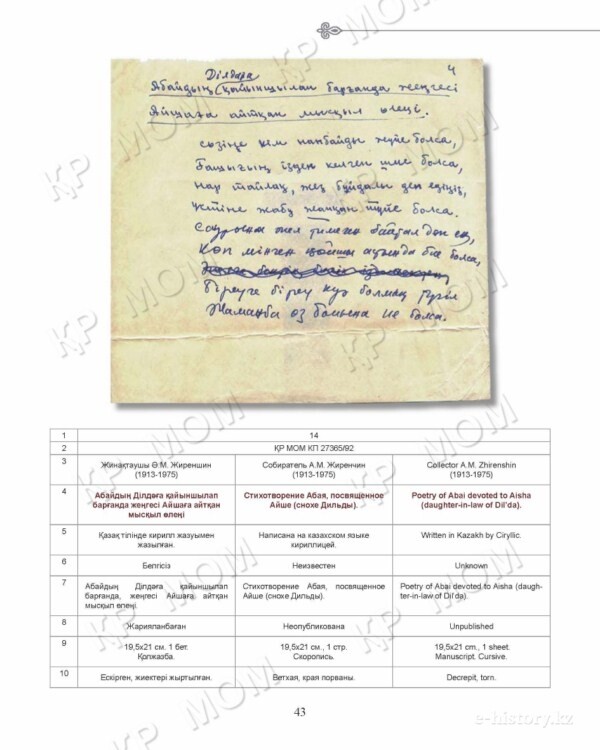 4
Ділдаға
Абайдың қайыншылап барғанда жеңгесі
Айшаға айтқан мысқыл өлеңі.
сөзіңе кем нанбайды жүйе болса,
Башығың ізден келген болса,
нар тайлақ, жез бұйдалы ден едіңіз,
Үстіне жабу жапқан түйе болса.
Сауырына жел тимеген байтал деп ем,
Көп мінген ауында бие болса,
Біреуге біреу күә болмақ
Жаманба өз бойыңа ие болса.
1 14
2 ҚР МОМ КП 27365/92
3 Жинақтаушы Ә.М. Жиреншин (1913-1975) Собиратель А.М. Жиренчин (1913-1975) Collector A.M. Zhirenshin (1913-1975)
4 Абайдың Ділдәға қайыншылап барғанда жеңгесі Айшаға айтқан мысқыл өлеңі Стихотворение Абая, посвященное Айше (снохе Дильды). Poetry of Abai devoted to Aisha (daughter-in-law of Dil'da).
5 Қазақ тілінде кирилл жазуымен жазылған. Написана на казахском языке кириллицей. Written in Kazakh by Ciryllic.
6 Белгісіз Неизвестен Unknown
7 Абайдың Ділдәға қайыншылап барғанда, жеңгесі Айшаға, айтқан мысқыл өлеңі. Стихотворение Абая, посвященное Айше (снохе Дильды). Poetry of Abai devoted to Aisha (daugh-ter-in-law of Dil'da).
8 Жарияланбаған Неопубликована Unpublished
9 19,5х21 см. 1 бет. Қолжазба. 19,5х21 см., 1 стр. Скоропись. 19,5x21 cm., 1 sheet. Manuscript. Cursive.
10 Ескірген, жиектері жыртылған. Ветхая, края порваны. Decrepit, torn.
43
ҚР МОМ
e-history.kz